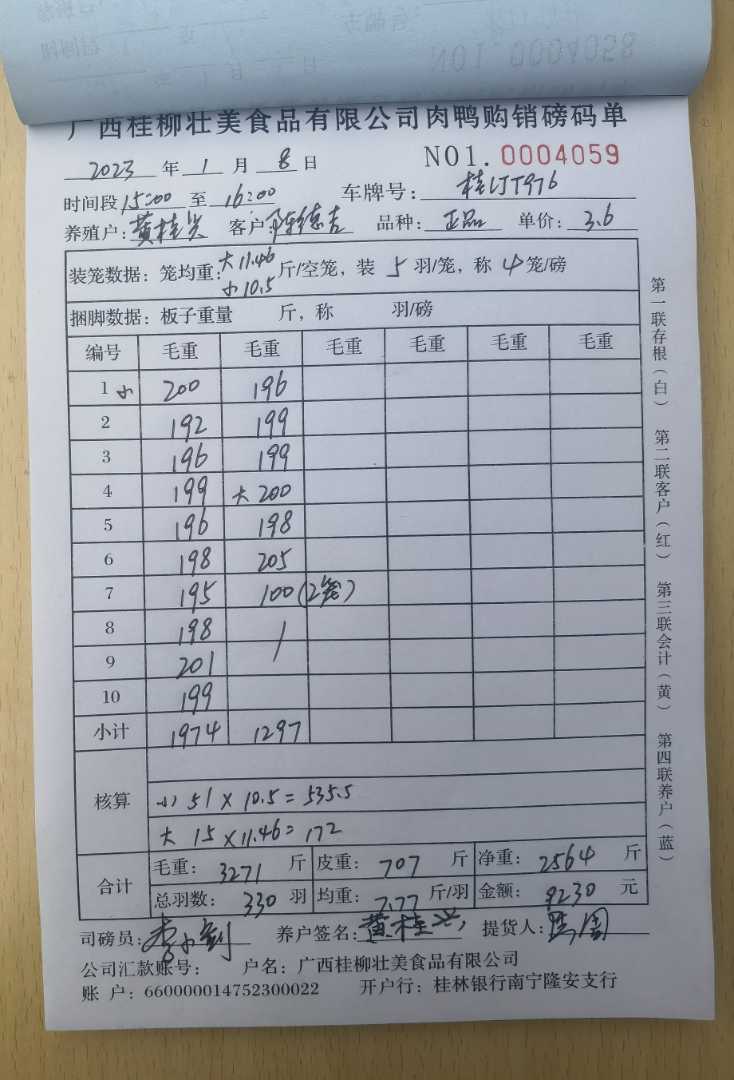 广西桂柳壮美食品有限公司肉鸭购销磅码单
2023 年 1 月 8 日 NO1. 0004059
时间段 15:00 至 16:00 车牌号: 桂JJT976
养殖户: 黄桂兴 客户: 陈德吉 品种: 正品 单价: 3.6
装笼数据: 笼均重: 大11.46 小10.5 斤/空笼, 装 5 羽/笼, 称 4 笼/磅
捆脚数据: 板子重量 斤, 称 羽/磅
编号 毛重 毛重 毛重 毛重 毛重 毛重
1 小 200 196
2 192 199
3 196 199
4 199 大 200
5 196 198
6 198 205
7 195 100 (2笼)
8 198
9 201
10 199
小计 1974 1297
核算
小 51 × 10.5 = 535.5
大 15 × 11.46 = 172
合计
毛重: 3271 斤 皮重: 707 斤 净重: 2564 斤
总羽数: 330 羽 均重: 7.77 斤/羽 金额: 9230 元
司磅员: 李小剑 养户签名: 黄桂兴 提货人:
公司汇款账号: 户名: 广西桂柳壮美食品有限公司
账 户: 660000014752300022 开户行: 桂林银行南宁隆安支行
第一联存根(白) 第二联客户(红) 第三联会计(黄) 第四联养户(蓝)
NO1. 0004058